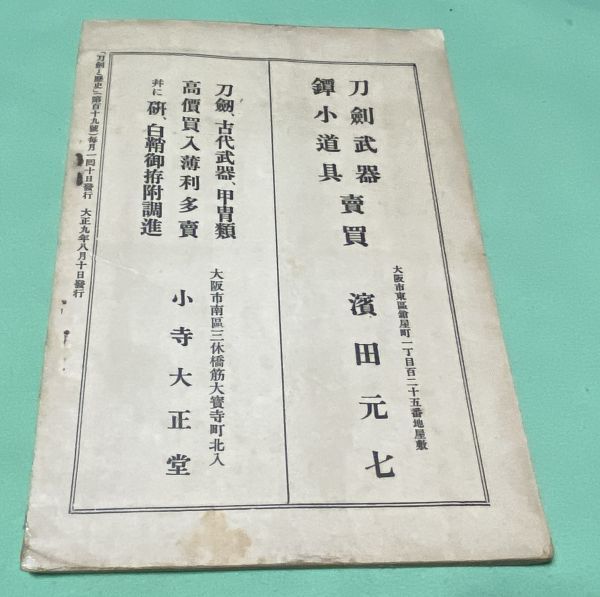 刀劍武器
鐔小道具
賣買
大阪市東區鎗屋町一丁目百二十五番地屋敷
濱田元七
刀劔、古代武器、甲冑類
高價買入薄利多賣
幷に研、白鞘御拵附調進
大阪市南區三休橋筋大寶寺町北入
小寺大正堂
「刀劍と歷史」(第百十九號)每月一回十日發行 大正九年八月十日發行